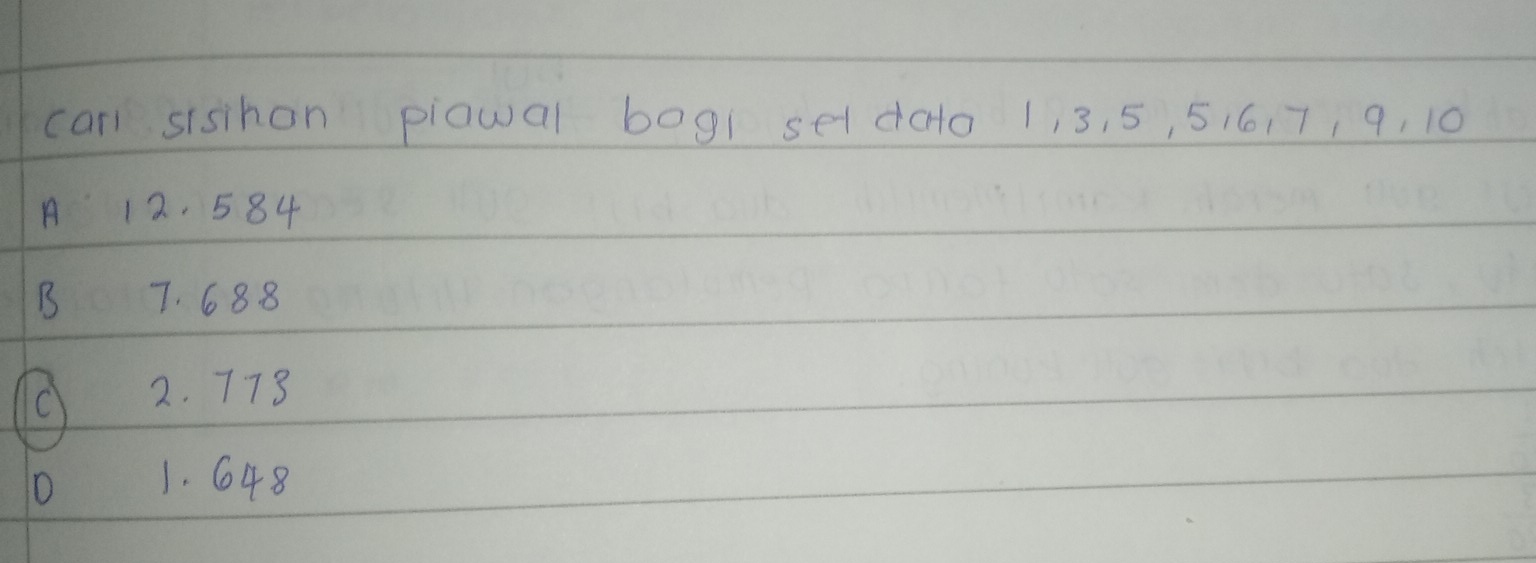 cari sisihan piawai bagi set data 1, 3, 5, 5, 6, 7, 9, 10
A 12.584
B 7.688
C 2.773
D 1.648